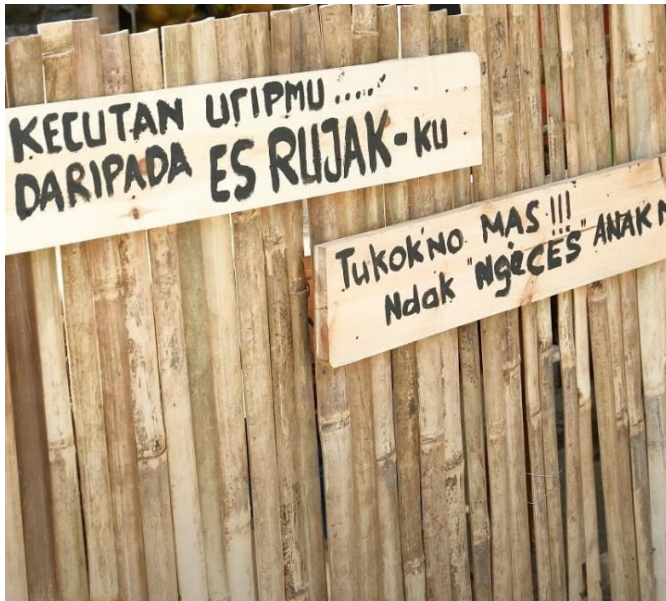 KECUTAN URIPMU .....
DARIPADA ES RUJAK-KU
TUKOK'NO MAS !!!
Ndak "NGECES" ANAK